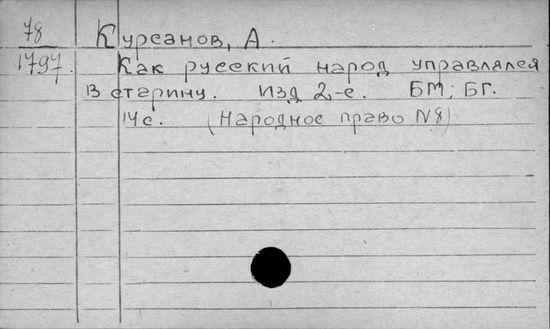 78 Курсанов, А.
1797. Как русский народ управлялся
в старину. Изд 2-е. БМ; БГ.
14с. (Народное право N8)